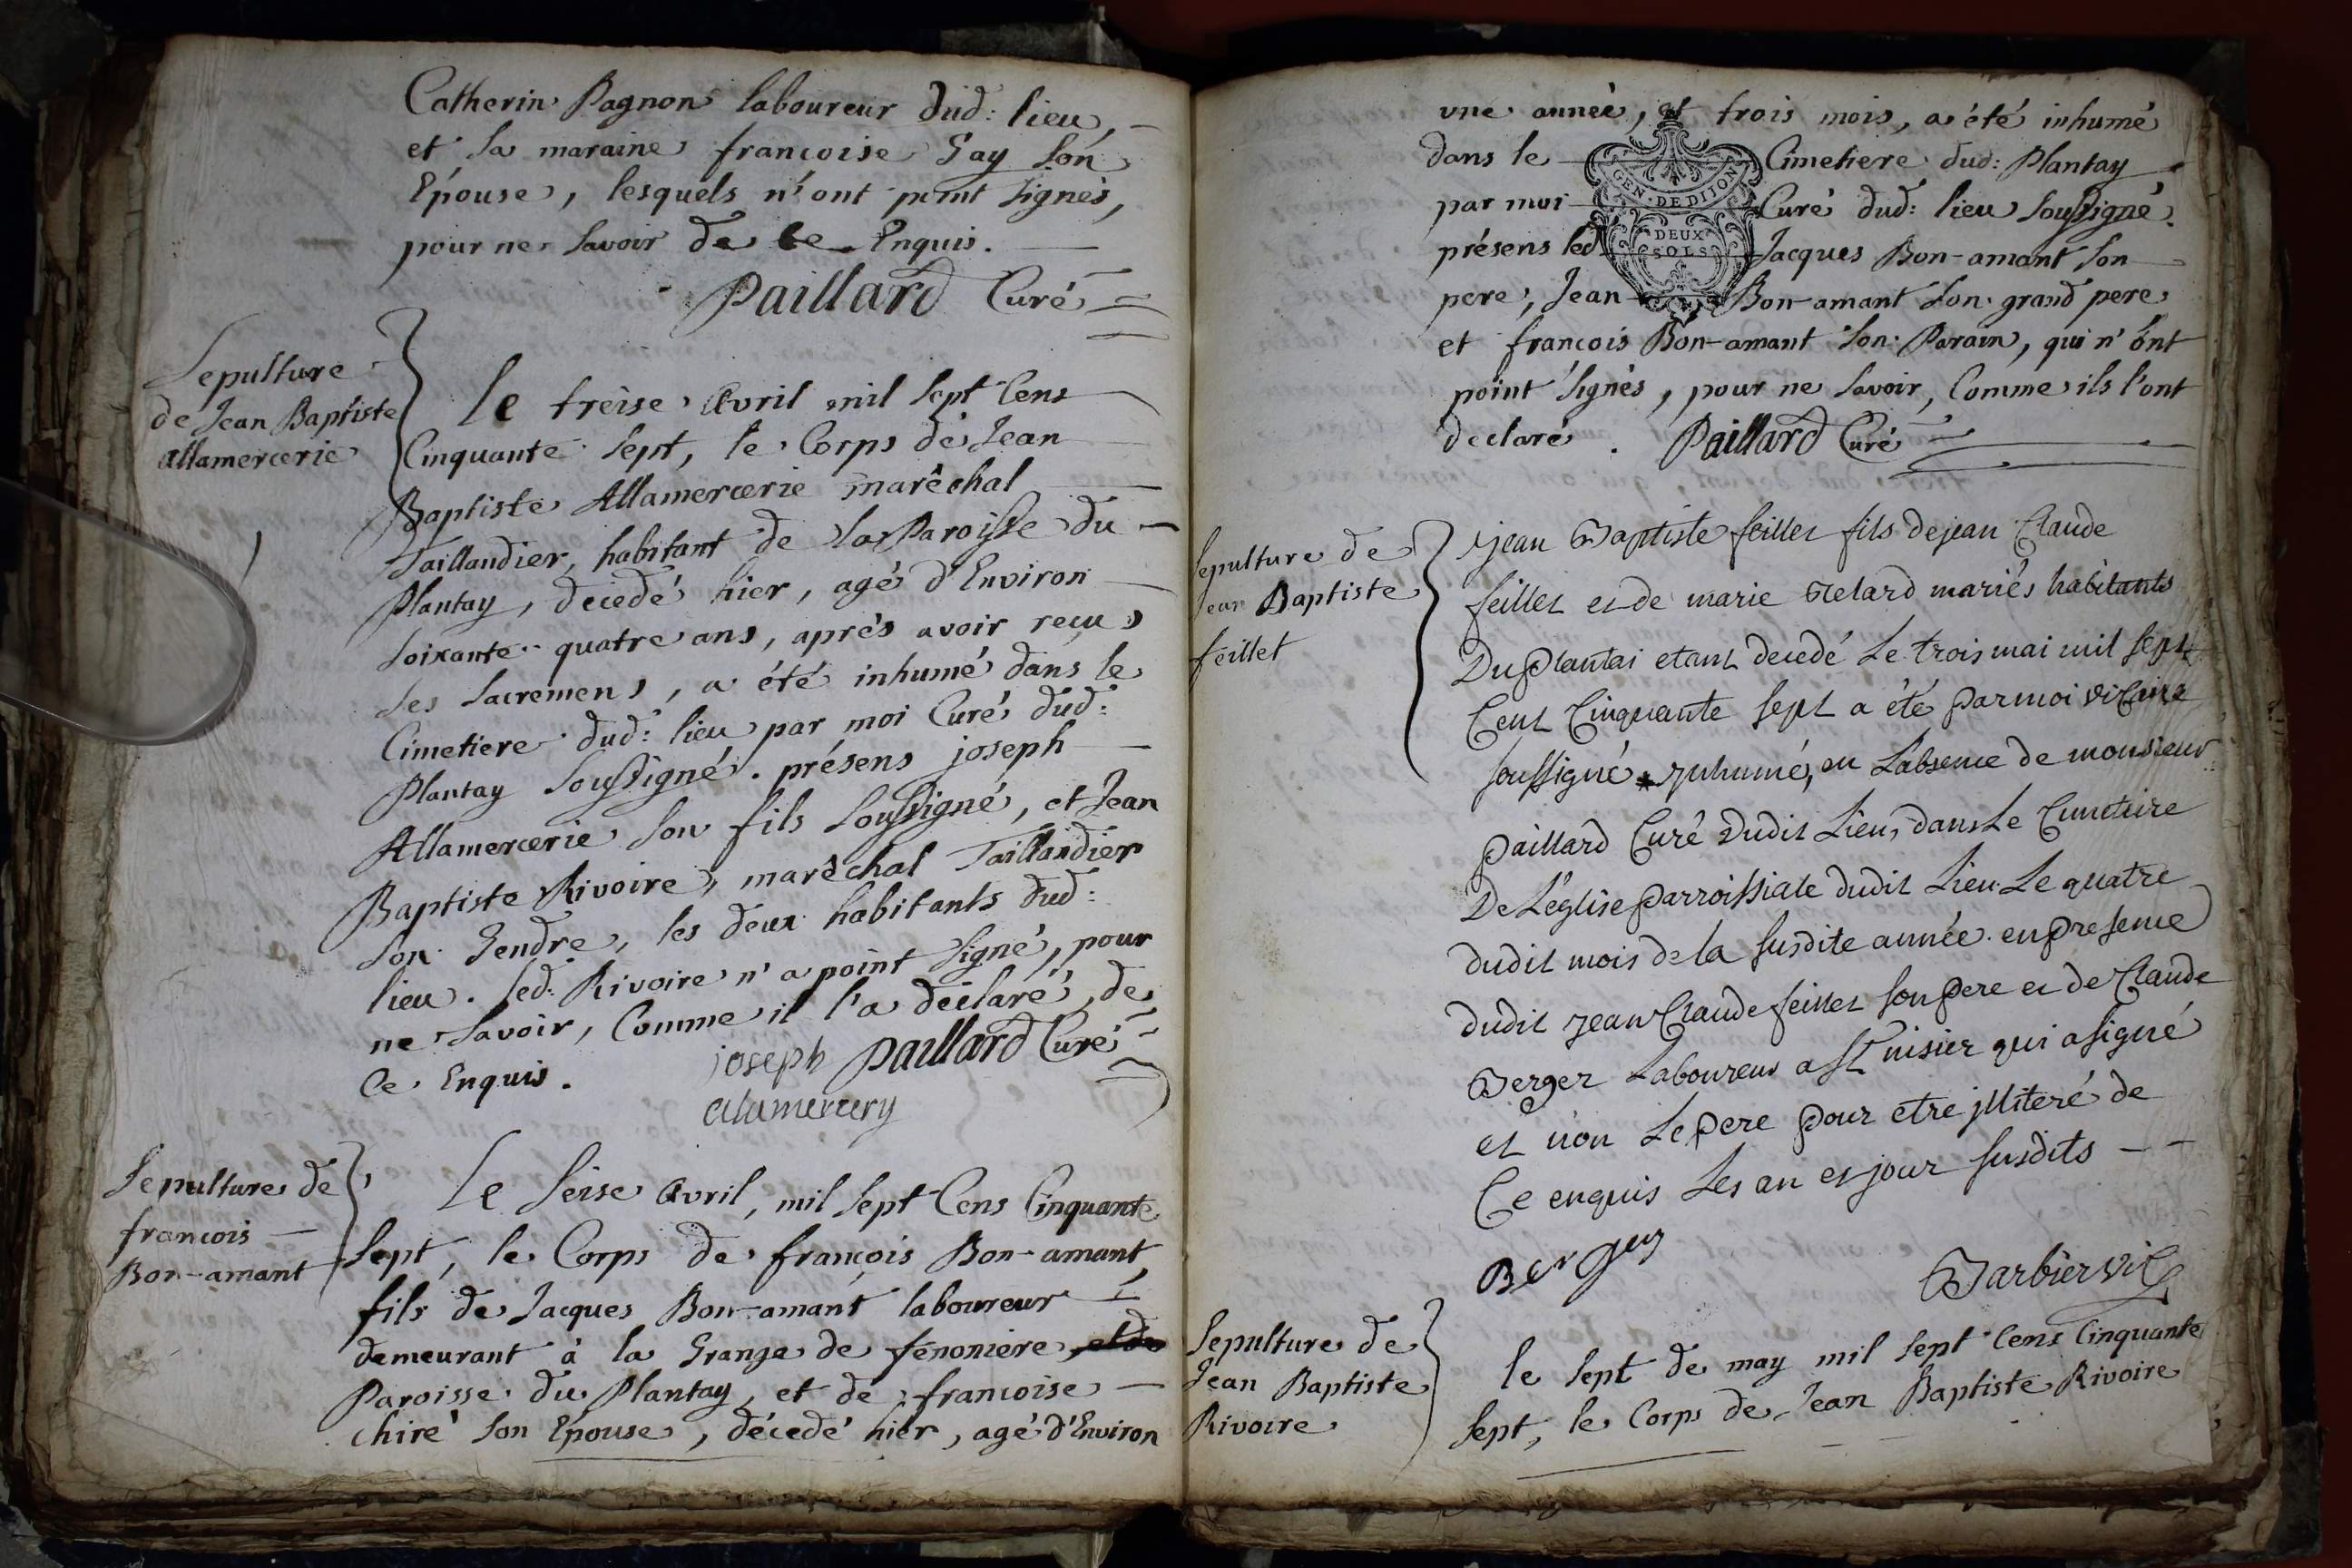 Catherin Pagnon laboureur dud: lieu,
et la maraine francoise Gay son
Epouse, lesquels n'ont point signés,
pour ne savoir de ce Enquis.
Paillard Curé
Sepulture
de Jean Baptiste
Allamercerie
Le treise Avril mil sept Cens
Cinquante sept, le Corps de Jean
Baptiste Allamercerie marêchal
Taillandier, habitant de la Paroisse du
Plantay, decedé hier, agé d'Environ
soixante-quatre ans, aprés avoir reçu
les sacremens, a été inhumé dans le
Cimetiere dud: lieu par moi Curé dud:
Plantay soussigné. présens joseph
Allamercerie son fils soussigné, et Jean
Baptiste Rivoire, marêchal Taillandier
son Gendre, les deux habitants dud:
lieu. led: Rivoire n'a point signé, pour
ne savoir, Comme il l'a déclaré, de
Ce Enquis.
joseph Paillard Curé
alamercery
Sepulture de
francois
Bon-amant
Le seise Avril, mil sept Cens Cinquante
sept, le Corps de françois Bon-amant,
fils de Jacques Bon-amant laboureur
demeurant à la Grange de fenoniere
Paroisse du Plantay, et de francoise
chiré son Epouse, décedé hier, agé d'Environ
une année, et trois mois, a été inhumé
dans le Cimetiere dud: Plantay
par moi Curé dud: lieu soussigné.
présens led Jacques Bon-amant son
pere, Jean Bon-amant son grand pere
et francois Bon-amant son Parain, qui n'ont
point signés, pour ne savoir, Comme ils l'ont
declaré. Paillard Curé
GEN. DE DIJON
DEUX
SOLS
Sepulture de
Jean Baptiste
feillet
jean Baptiste feillet fils de jean Claude
feillet et de marie mariés habitants
Du Plantai etant decedé Le trois mai mil sept
Cent Cinquante sept a été par moi vicaire
soussigné * inhumé, en L'absence de monsieur
paillard Curé dudit Lieu, dans Le Cimetiere
De L'église parroissiale dudit Lieu Le quatre
dudit mois de la susdite année. en presence
dudit jean Claude feillet son pere et de Claude
Berger Laboureur a St nisier qui a signé
et non Le pere pour etre jlliteré de
Ce enquis Les an et jour susdits - -
Berger
Barbier vic
Sepulture de
Jean Baptiste
Rivoire
le sept de may mil sept Cens Cinquante
sept, le Corps de Jean Baptiste Rivoire